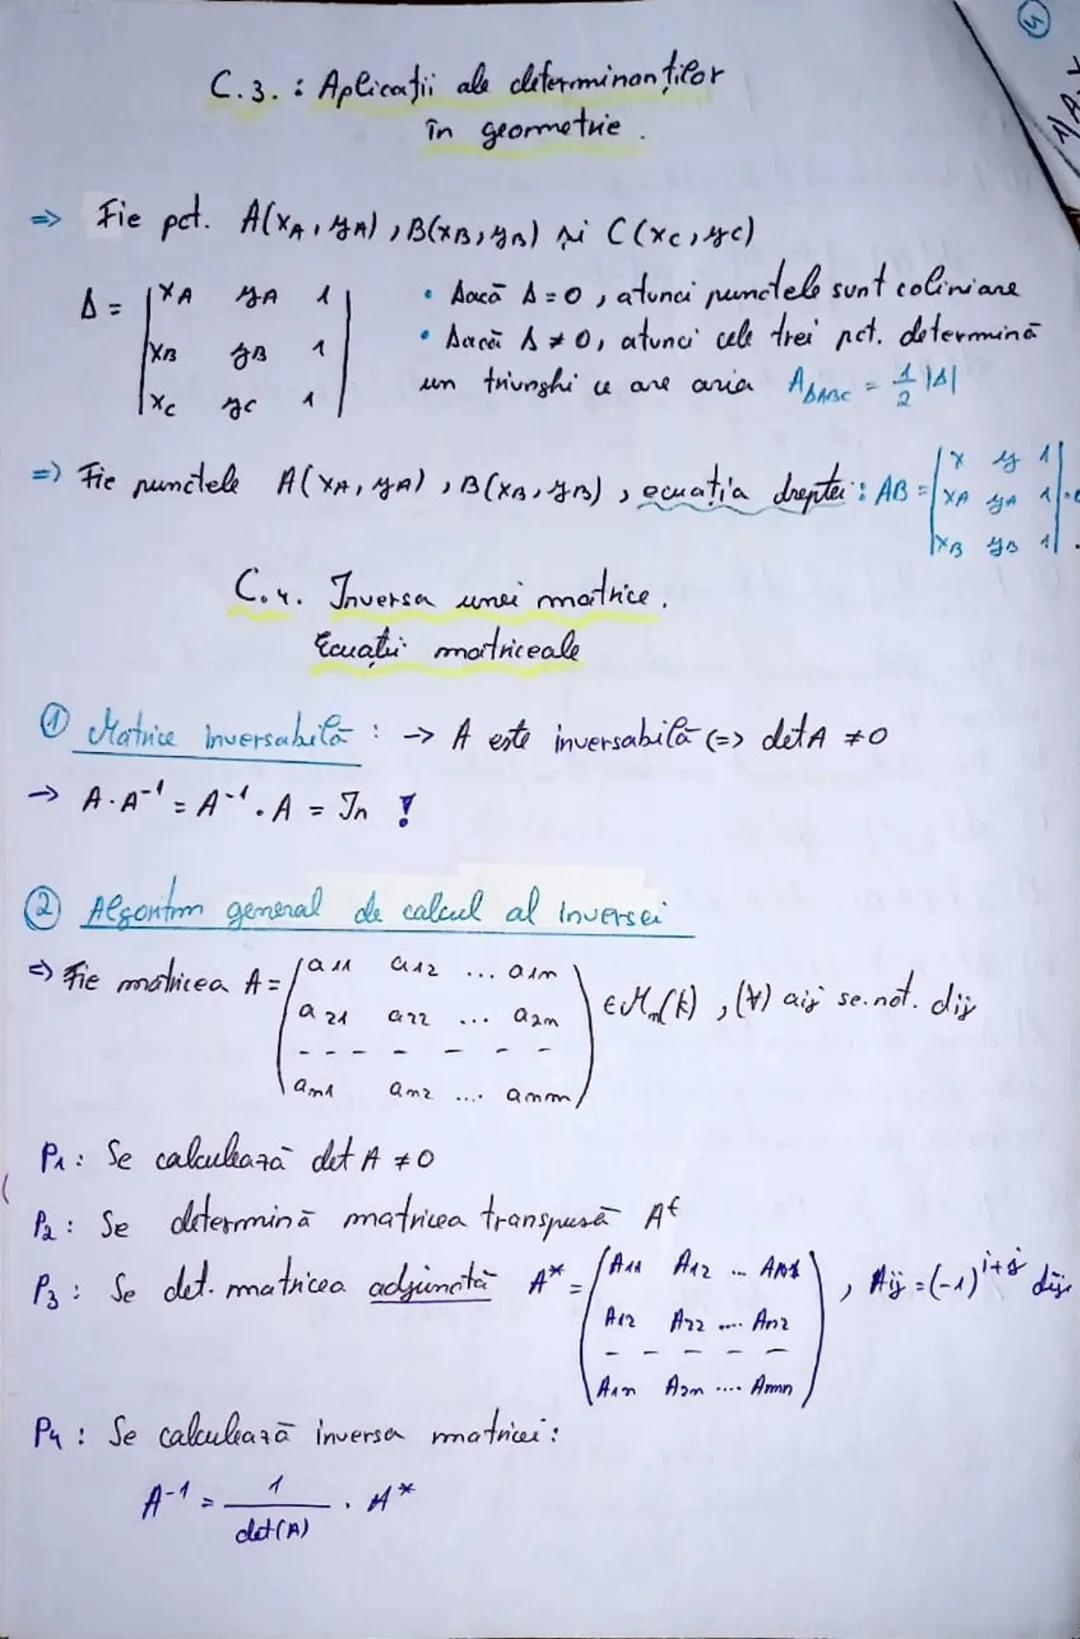 4
C.3. : Aplicații ale determinanților
în geometrie.
=> Fie pct. A(xA, yA), B(xB, yB) și C(xC, yC)
Δ = | xA yA 1 |
| xB yB 1 |
| xC yC 1 |
• Dacă Δ = 0, atunci punctele sunt coliniare
• Dacă Δ ≠ 0, atunci cele trei pct. determină
un triunghi ce are aria AΔABC = 1/2 |Δ|
=> Fie punctele A(xA, yA), B(xB, yB), ecuația dreptei: AB = | x y 1 |
| xA yA 1 | = 0
| xB yB 1 | .
C.4. Inversa unei matrice.
Ecuații matriceale
① Matrice inversabilă : → A este inversabilă <=> det A ≠ 0
→ A · A⁻¹ = A⁻¹ · A = In !
② Algoritm general de calcul al inversei
=> Fie matricea A = ( a11 a12 ... a1n
a21 a22 ... a2n
- - - - - - -
an1 an2 ... ann ) ∈ Mn(k), (∀) aij se.not. dij
P1: Se calculează det A ≠ 0
P2: Se determină matricea transpusă Aᵗ
P3: Se det. matricea adjunctă A* = ( A11 A12 ... An1 ) , Aij = (-1)^i+j dij
A12 A22 .... An2
- - - - -
A1n A2n .... Ann )
P4: Se calculează inversa matricei:
A⁻¹ = 1/det(A) · A*